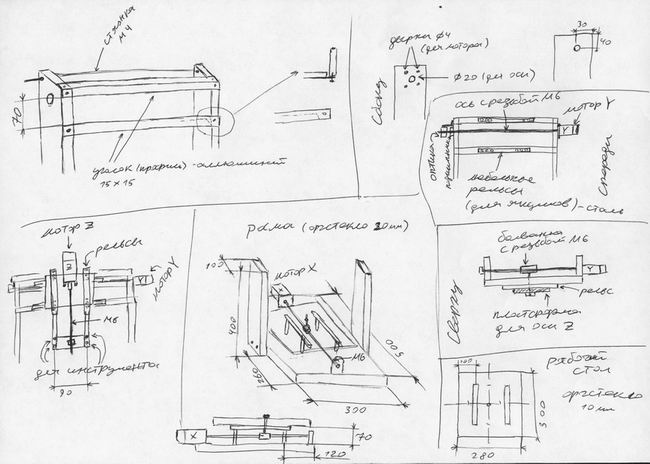 стяжка
М4
70
уголок (профиль) - алюминий
15 х 15
сбоку
дырки ф4
(для мотора)
ф20 (для оси)
30
40
ось с резьбой М6
мотор Y
Y
мебельные
рельсы
(для ящиков) - сталь
спереди
мотор Z
Z
рельсы
мотор Y
Y
М6
для инструмента
90
рама (оргстекло 10мм)
100
мотор X
X
400
М6
500
260
300
X
70
120
сверху
болванка
с резьбой М6
Y
рельс
платформа
для оси Z
рабочий
стол
оргстекло
10 мм
100
300
280